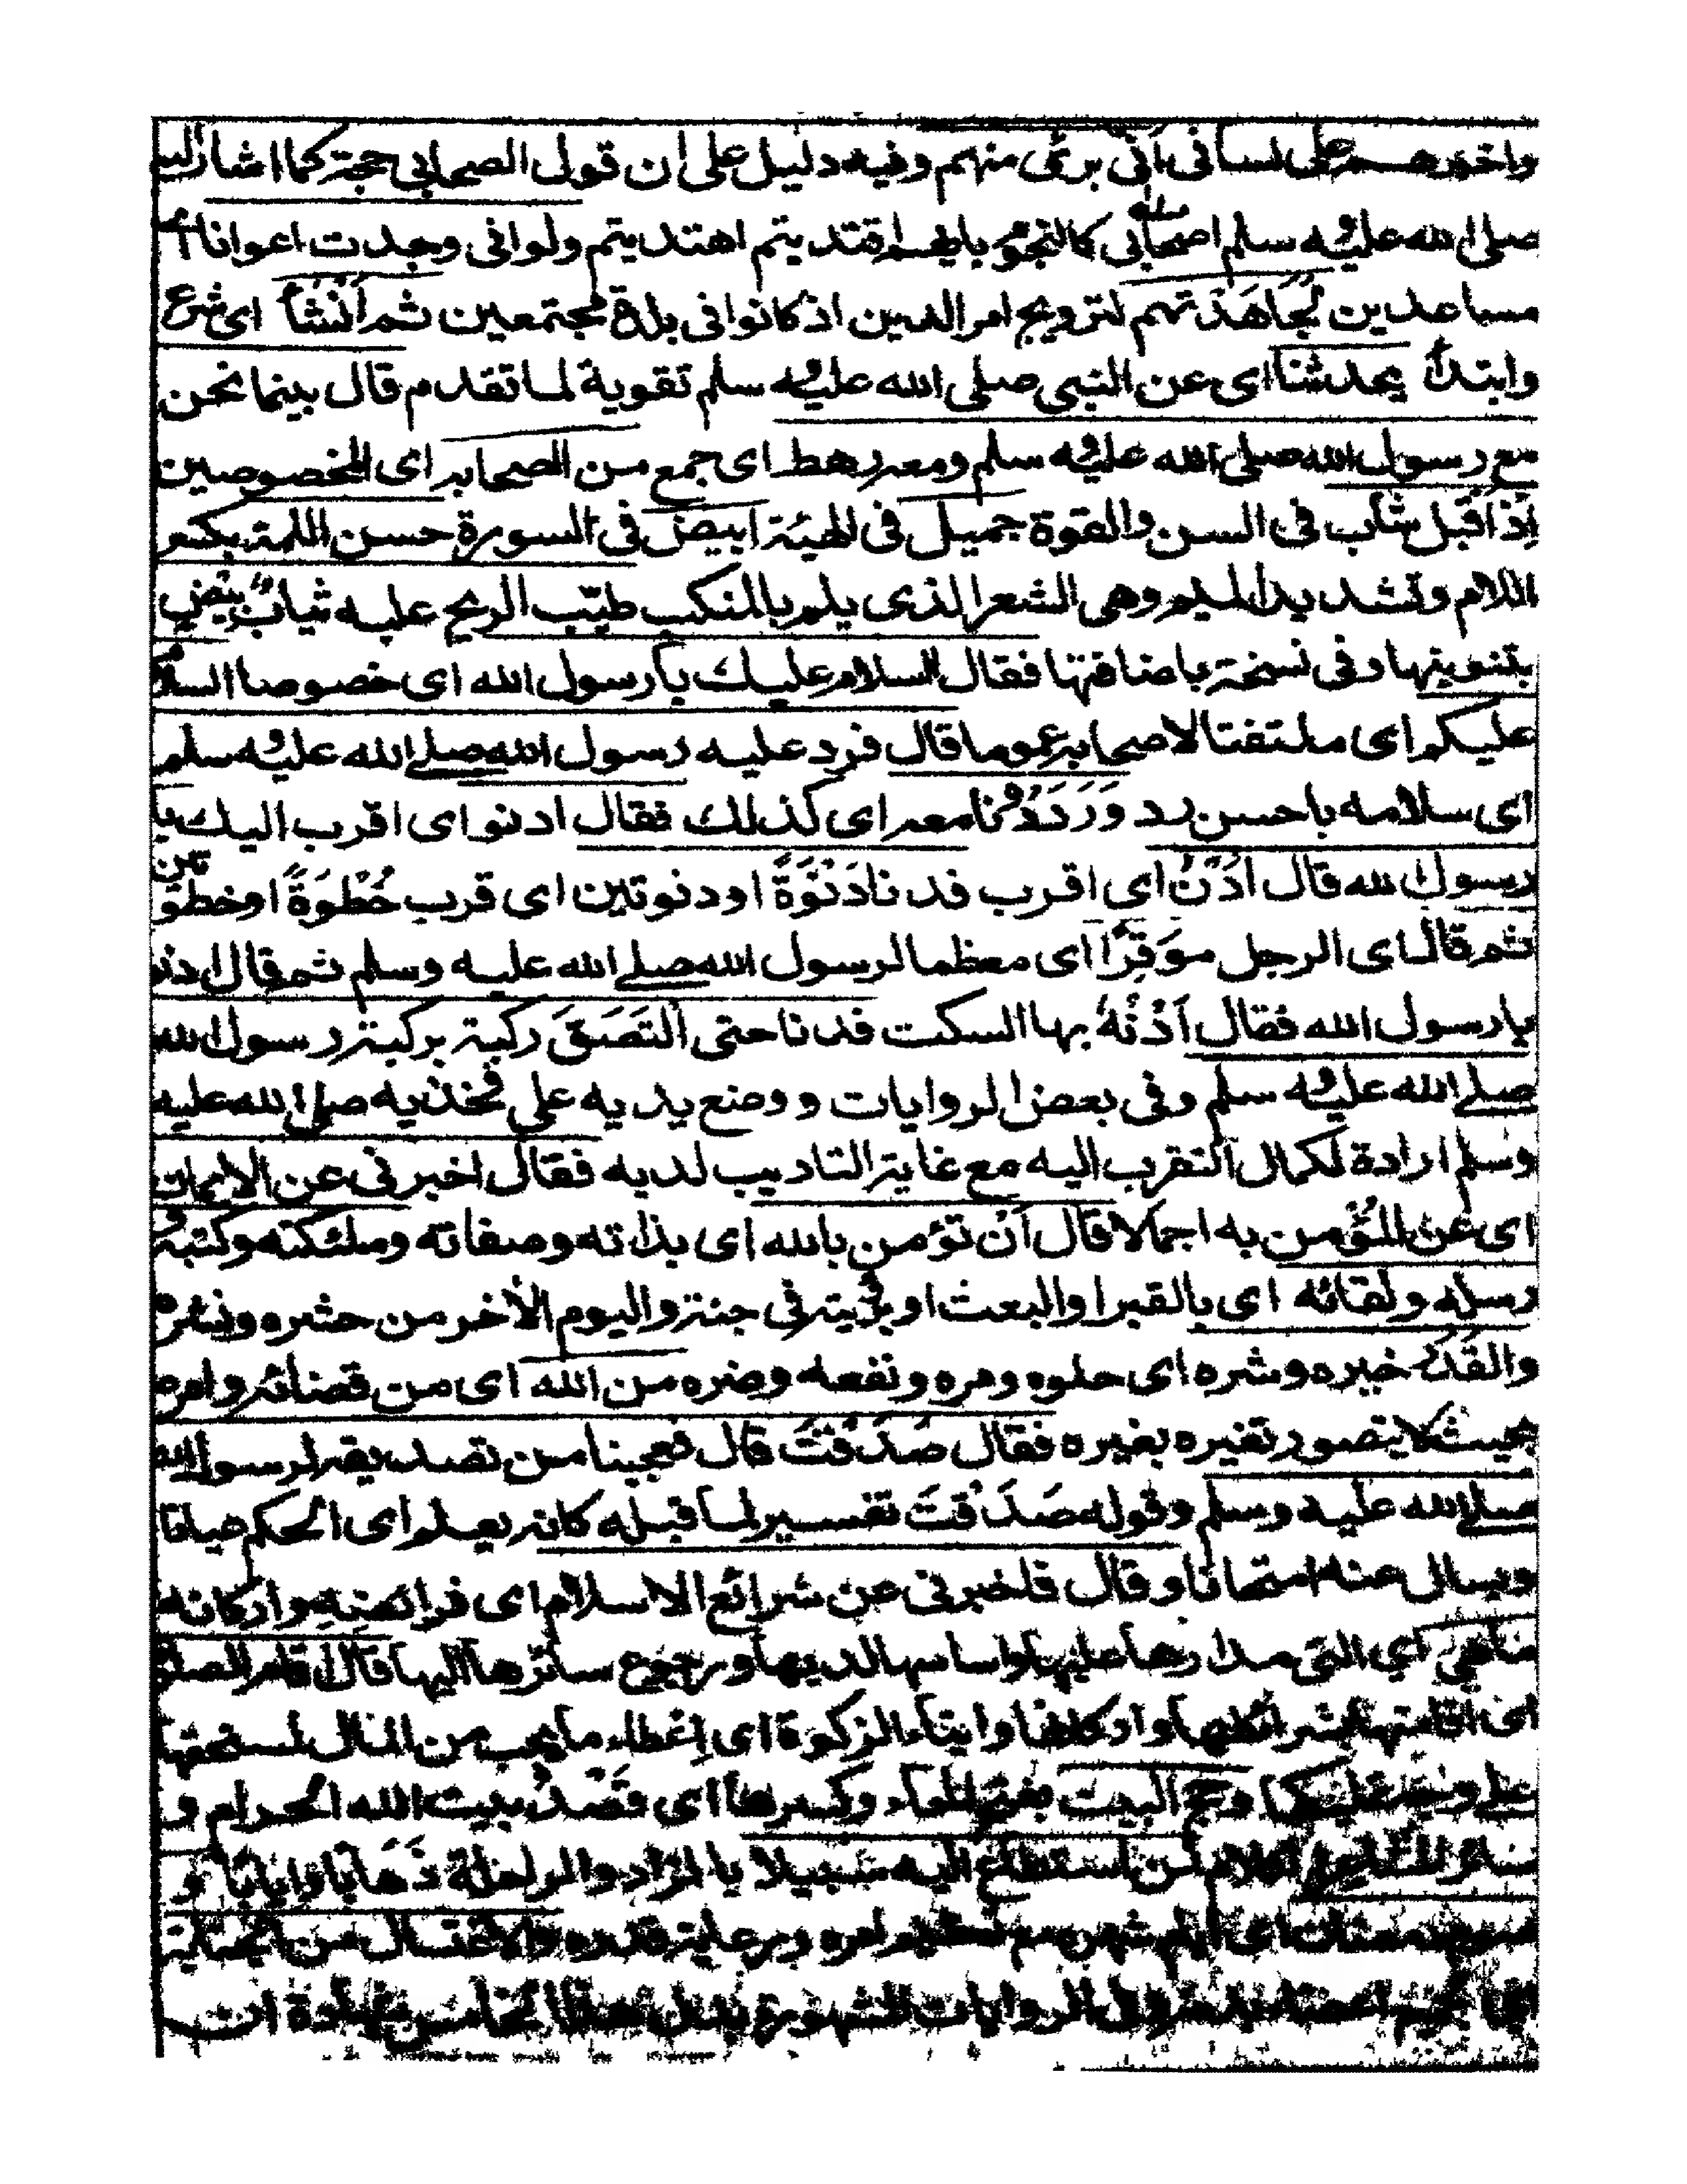 على لسانى انى برئ منهم وفيه دليل على ان قول الصحابى حجة كما اشار
صلى الله عليه وسلم اصحابى كالنجوم بايهم اقتديتم اهتديتم ولو انى وجدت اعوانا اى
مساعدين لجاهدتهم لترويج امر الدين اذ كانوا فى بلدة مجتمعين ثم انشأ اى شرع
وابتدأ يحدثنا اى عن النبى صلى الله عليه وسلم تقوية لما تقدم قال بينما نحن
مع رسول الله صلى الله عليه وسلم ومعه رهط اى جمع من الصحابه اى المخصوصين
اِذْ اَقْبل شاب فى السن والقوة جميل فى الهيئة ابيض فى السورة حسن اللمة بكسر
اللام وتشديد الميم وهى الشعر الذى يلم بالمنكب طيّب الريح عليه ثيابٌ بيضٍ
بتنوينها وفى نسخة باضافتها فقال السلام عليك يا رسول الله اى خصوصا السلام
عليكم اى ملتفتا لاصحابه عموما قال فرد عليه رسول الله صلى الله عليه وسلم
اى سلامه باحسن رد وَرَدَدْنا معه اى كذلك فقال ادنو اى اقرب اليك يا
رسول الله قال اُدْنُ اى اقرب فدنا دَنْوَةً او دنوتين اى قرب خُطْوَةً او خطوتين
ثم قال اى الرجل موَقِّرًا اى معظما لرسول الله صلى الله عليه وسلم ثم قال ادنو
يا رسول الله فقال اُدْنُهْ بها السكت فدنا حتى اَلتَصَقَ ركبته بركبة رسول الله
صلى الله عليه وسلم وفى بعض الروايات و وضع يديه على فخذيه صلى الله عليه
وسلم ارادة لكمال التقرب اليه مع غاية التاديب لديه فقال اخبرنى عن الايمان
اى عن المُؤْمن به اجمالا قال اَنْ تؤمن بالله اى بذاته وصفاته وملئكته وكتبه و
رسله ولقائه اى بالقبر او البعث او برُؤيته فى جنته واليوم الأخر من حشره ونشره
والقَدَر خيره وشره اى حلوه ومره ونفعه وضره من الله اى من قضائه وامره
بحيث لا يتصور تغيره بغيره فقال صَدَقْتَ قال فعجبنا من تصديقه لرسول الله
صلى الله عليه وسلم وقوله صَدَقْتَ تفسير لما قبله كانه يعلم اى الحكم
ويسال عنه امتحانا وقال فاخبرنى عن شرائع الاسلام اى فرائضه واركانه
ما هى اى التى مدارها عليها واساسها لديها ورجوع سائرها اليها قال اقام الصلوة
اى اقامتها بشرائطها واركانها وايتاء الزكوة اى اِعطاء ما يجب من المال لمستحقها
على وحج البيت بفتح الحاء وكسرها اى قَصْدُ بيت الله الحرام و
سائر لمن استطاع اليه سبيلا بالزاد والراحلة ذَهَابا وايابا و
صوم رمضان اى ايام شهره مع تعظيم امره ورعاية قدره والاغتسال من الجنابة
الروايات المشهورة بدل هذا الخامس شهادة ان